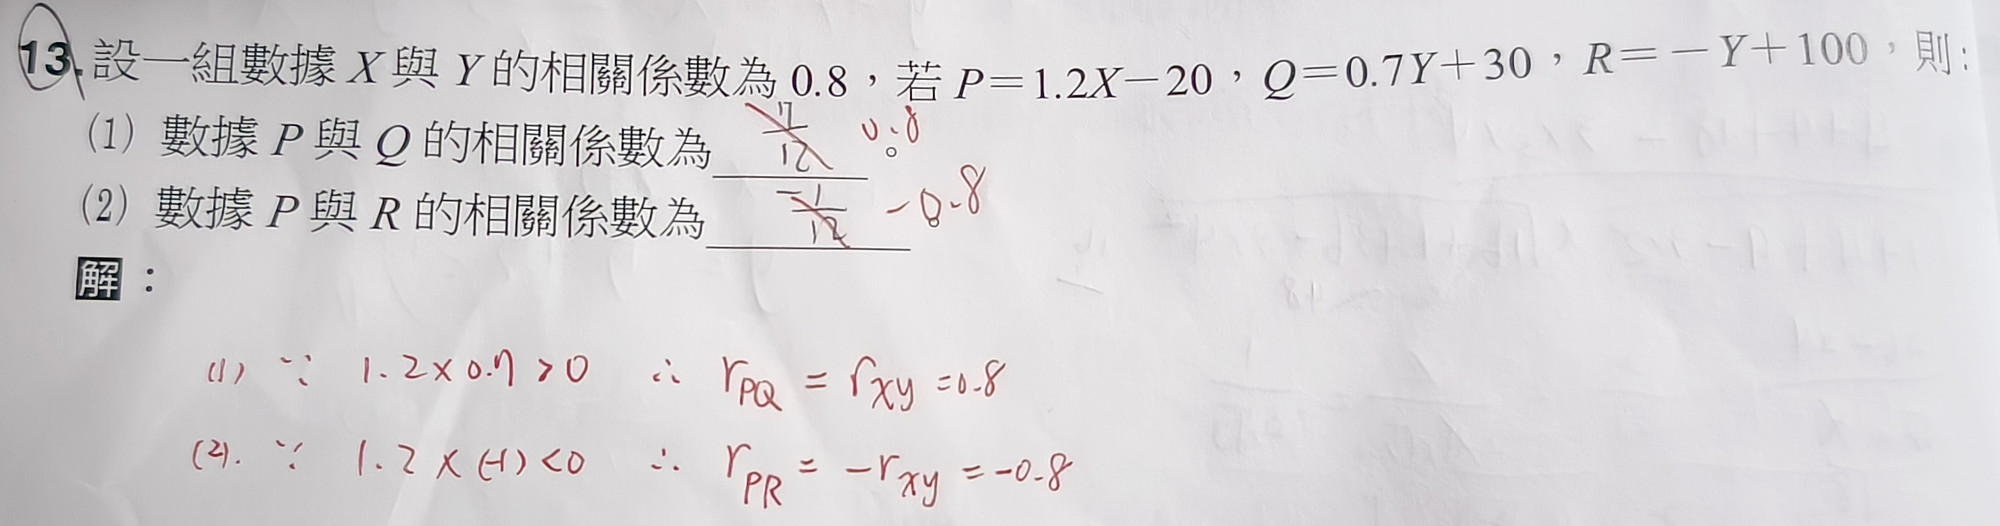 13. 設一組數據 X 與 Y 的相關係數為 0.8，若 P＝1.2X－20，Q＝0.7Y＋30，R＝－Y＋100，則：
(1) 數據 P 與 Q 的相關係數為 7/12 0.8 。
(2) 數據 P 與 R 的相關係數為 -1/12 -0.8 。
解：
(1) ∵ 1.2×0.7>0 ∴ r_PQ = r_xy = 0.8
(2). ∵ 1.2×(-1)<0 ∴ r_PR = -r_xy = -0.8